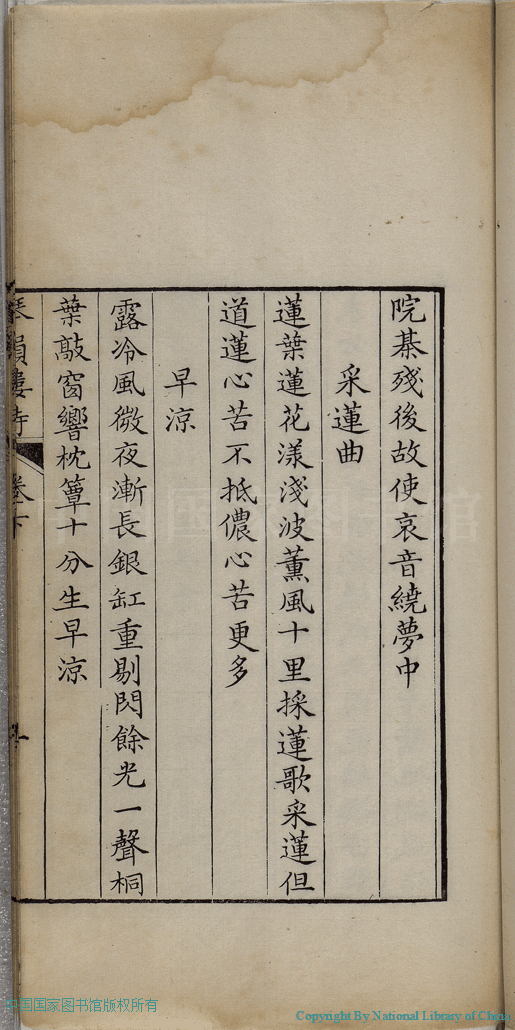 院棊殘後故使哀音繞夢中
采蓮曲
蓮葉蓮花漾淺波薰風十里採蓮歌采蓮但
道蓮心苦不抵儂心苦更多
早涼
露冷風微夜漸長銀缸重剔閃餘光一聲桐
葉敲窗響枕簟十分生早涼
琴韻樓詩 卷下
中国国家图书馆版权所有
Copyright By National Library of China